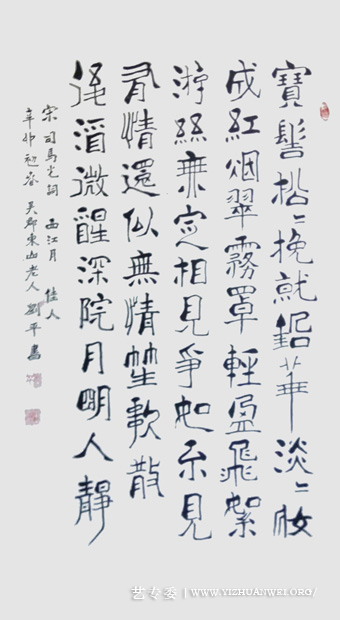 寶髻松〻挽就鉛華淡〻妝
成紅烟翠霧罩輕盈飛絮
游絲無定相見爭如不見
有情還似無情笙歌散
後酒微醒深院月明人靜
宋司馬光詞 西江月 佳人
辛卯初春 吳郡東山老人劉平書
艺专委 | WWW.YIZHUANWEI.ORG/